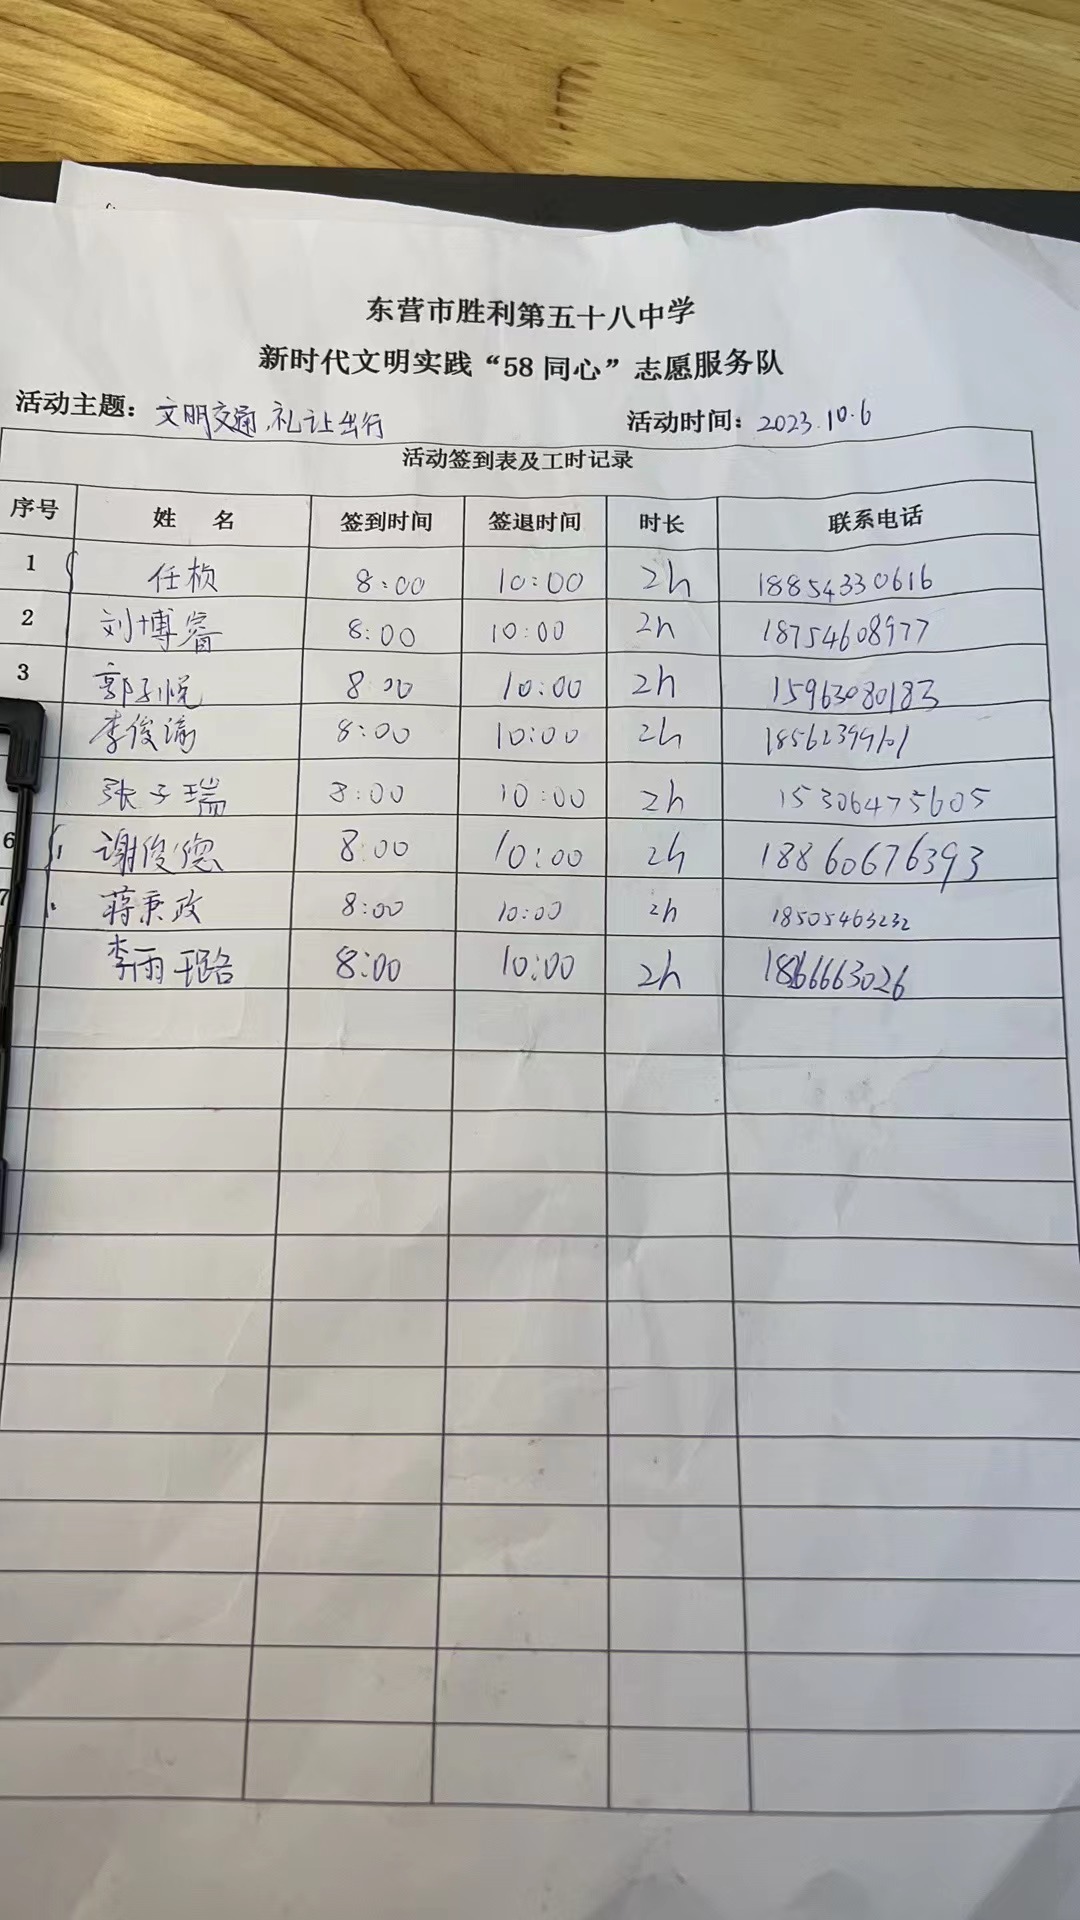 东营市胜利第五十八中学
新时代文明实践“58 同心”志愿服务队
活动主题：文明交通,礼让出行 活动时间：2023.10.6
活动签到表及工时记录
序号 姓 名 签到时间 签退时间 时长 联系电话
1 任桢 8:00 10:00 2h 18854330616
2 刘博睿 8:00 10:00 2h 18754608977
3 郭子悦 8:00 10:00 2h 15963080183
李俊 8:00 10:00 2h
张子瑞 8:00 10:00 2h 15306475605
6 谢俊德 8:00 10:00 2h 18860676393
7 蒋秉政 8:00 10:00 2h 18505463232
李雨璐 8:00 10:00 2h 18666663026